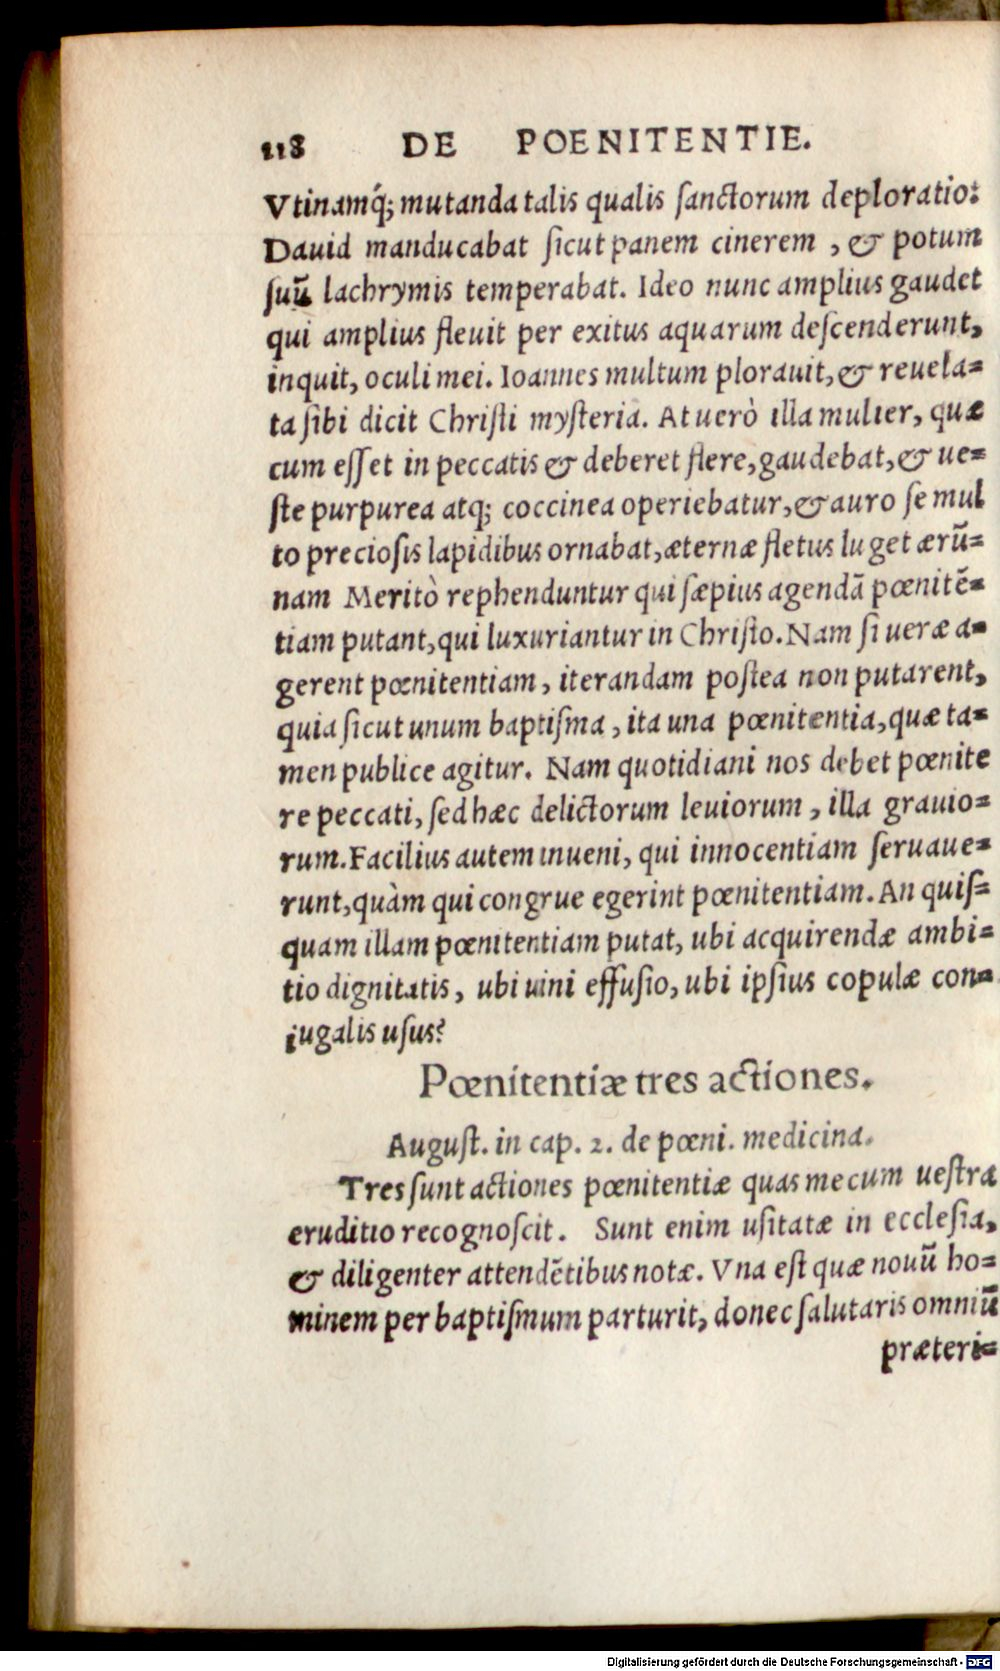 118 DE POENITENTIE.
Vtinamq́; mutanda talis qualis ſanctorum deploratio:
Dauid manducabat ſicut panem cinerem , & potum
ſuū lachrymis temperabat. Ideo nunc amplius gaudet
qui amplius fleuit per exitus aquarum deſcenderunt,
inquit, oculi mei. Ioannes multum plorauit, & reuela=
ta ſibi dicit Chriſti myſteria. At uerò illa mulier, quæ
cum eſſet in peccatis & deberet flere, gaudebat, & ue=
ſte purpurea atq; coccinea operiebatur, & auro ſe mul
to precioſis lapidibus ornabat, æternæ fletus luget ærū=
nam Meritò rephenduntur qui ſæpius agendā pœnitē=
tiam putant, qui luxuriantur in Chriſto. Nam ſi ueræ a=
gerent pœnitentiam, iterandam poſtea non putarent,
quia ſicut unum baptiſma , ita una pœnitentia, quæ ta=
men publice agitur. Nam quotidiani nos debet pœnite
re peccati, ſed hæc delictorum leuiorum , illa grauio=
rum. Facilius autem inueni, qui innocentiam ſeruaue=
runt, quàm qui congrue egerint pœnitentiam. An quiſ=
quam illam pœnitentiam putat, ubi acquirendæ ambi=
tio dignitatis, ubi uini effuſio, ubi ipſius copulæ con=
iugalis uſus?
Pœnitentiæ tres actiones.
Auguſt. in cap. 2. de pœni. medicina.
Tres ſunt actiones pœnitentiæ quas mecum ueſtra
eruditio recognoſcit. Sunt enim uſitatæ in eccleſia,
& diligenter attendētibus notæ. Vna eſt quæ nouū ho=
minem per baptiſmum parturit, donec ſalutaris omniū
præteri=
Digitalisierung gefördert durch die Deutsche Forschungsgemeinschaft - DFG